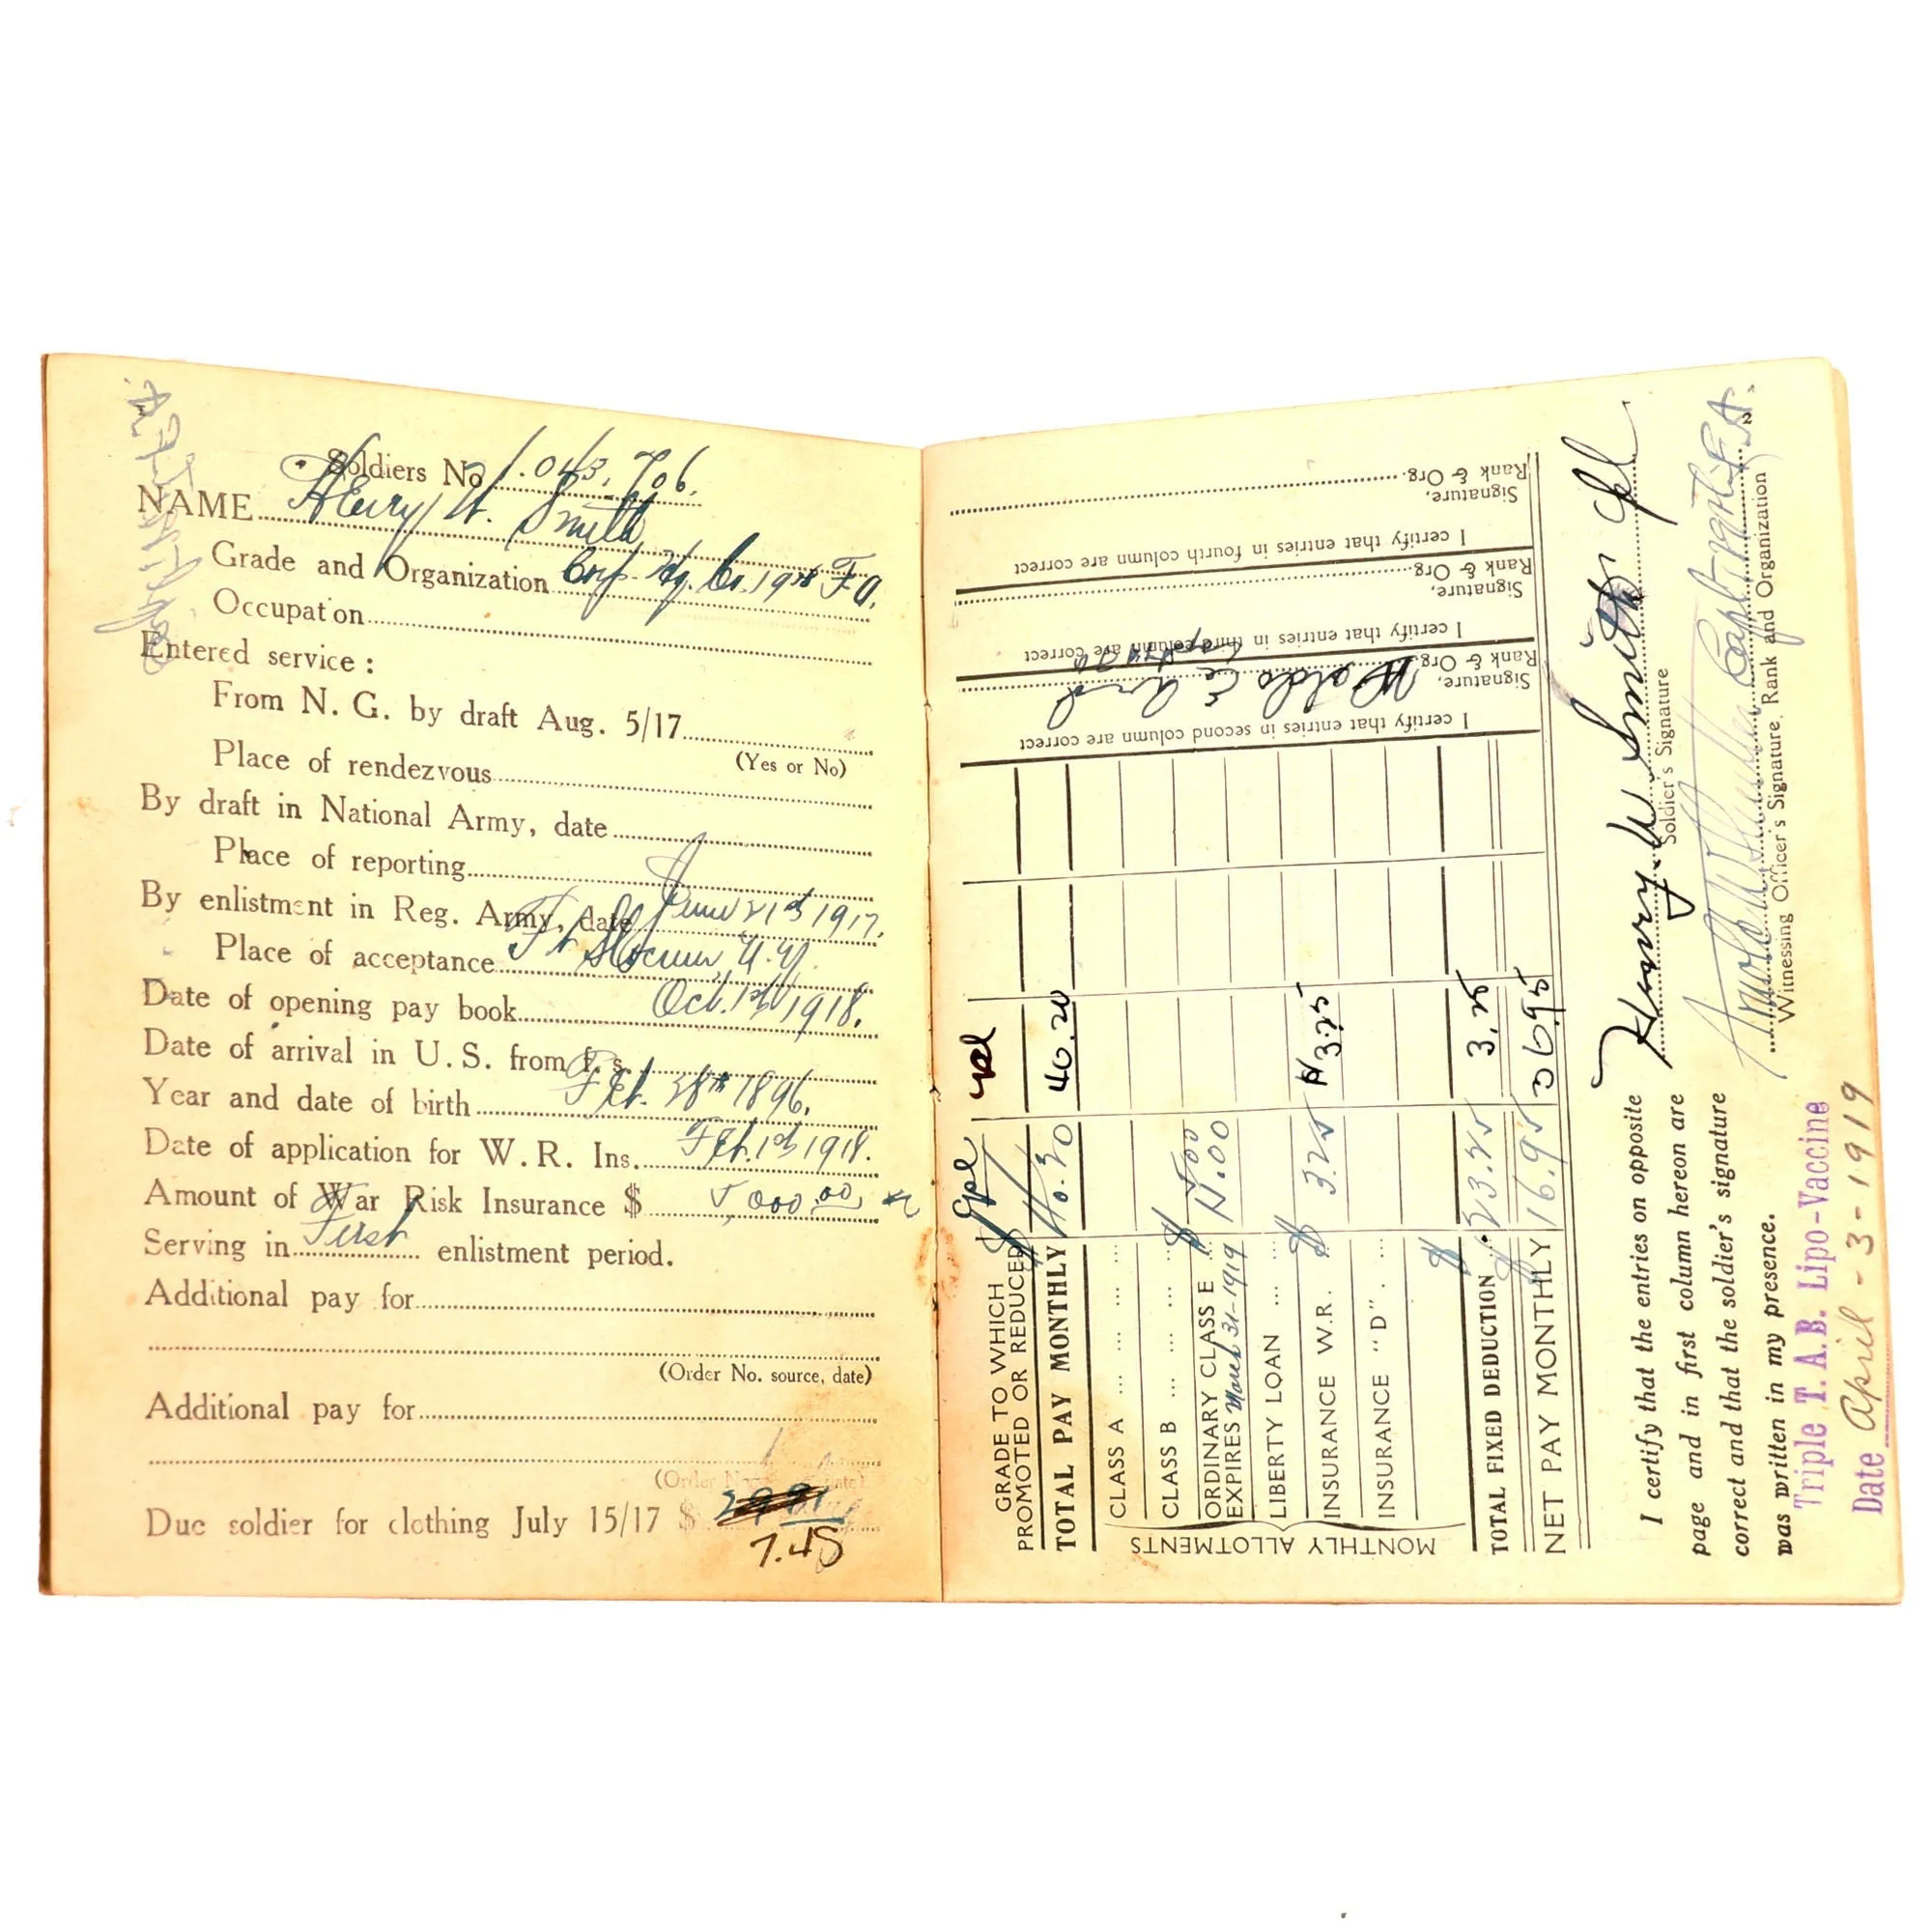 Soldiers No. 1.043.706.
NAME Henry W. Smith
Grade and Organization Corp. Hq. Co. 19th F.A.
Occupation
Entered service :
From N. G. by draft Aug. 5/17
(Yes or No)
Place of rendezvous
By draft in National Army, date
Place of reporting
By enlistment in Reg. Army, date June 21st 1917.
Place of acceptance Ft Slocum N.Y.
Date of opening pay book Oct. 1st 1918.
Date of arrival in U.S. from f. s.
Year and date of birth Feb. 28th 1896.
Date of application for W.R. Ins. Feb. 1st 1918.
Amount of War Risk Insurance $ 5,000.00
Serving in First enlistment period.
Additional pay for
(Order No. source, date)
Additional pay for
Due soldier for clothing July 15/17 $
7.45
GRADE TO WHICH PROMOTED OR REDUCED Cpl
TOTAL PAY MONTHLY 40.20 40.20
CLASS A
CLASS B $ 5.00
ORDINARY CLASS E 15.00
EXPIRES March 31-1919
LIBERTY LOAN
INSURANCE W.R. $ 3.25 3.25
INSURANCE "D"
$
MONTHLY ALLOTMENTS
TOTAL FIXED DEDUCTION 23.25 3.25
NET PAY MONTHLY 16.95 36.95
I certify that entries in second column are correct
Signature, Waldo E Ard
Rank & Org.
I certify that entries in third column are correct
Signature,
Rank & Org.
I certify that entries in fourth column are correct
Signature,
Rank & Org.
I certify that the entries on opposite
page and in first column hereon are
correct and that the soldier's signature
was written in my presence.
Henry W Smith Cpl
Soldier's Signature
Capt. 19th F.A.
Witnessing Officer's Signature, Rank and Organization
2
Triple T. A. B. Lipo-Vaccine
Date April - 3 - 1919